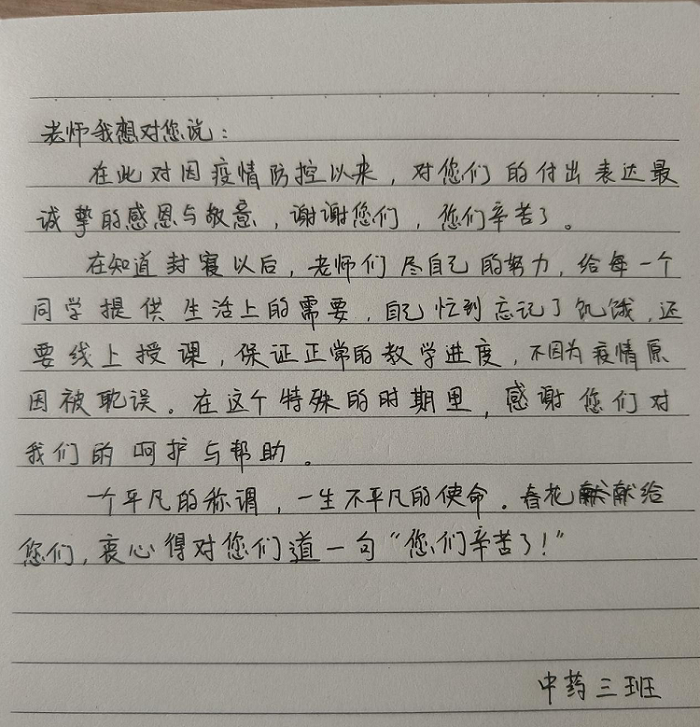 老师我想对您说：
在此对因疫情防控以来，对您们的付出表达最
诚挚的感恩与敬意，谢谢您们，您们辛苦了。
在知道封寝以后，老师们尽自己的努力，给每一个
同学提供生活上的需要，自己忙到忘记了饥饿，还
要线上授课，保证正常的教学进度，不因为疫情原
因被耽误。在这个特殊的时期里，感谢您们对
我们的呵护与帮助。
一个平凡的称谓，一生不平凡的使命。春花献给
您们，衷心得对您们道一句“您们辛苦了！”
中药三班